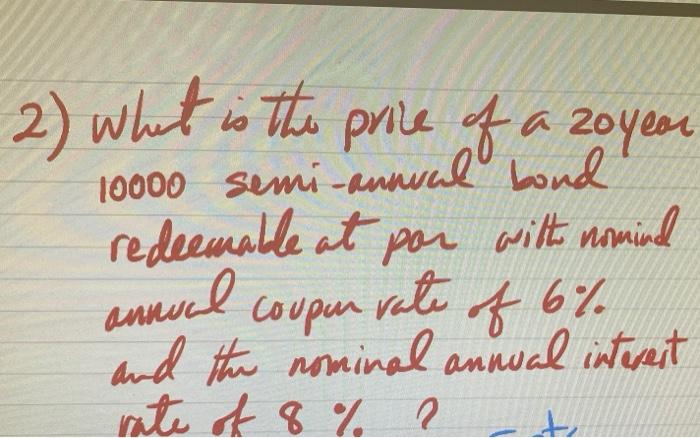 2) What is the price of a 20 year
10000 semi-annual bond
redeemable at par with nominal
annual coupon rate of 6%
and the nominal annual interest
rate of 8% ?